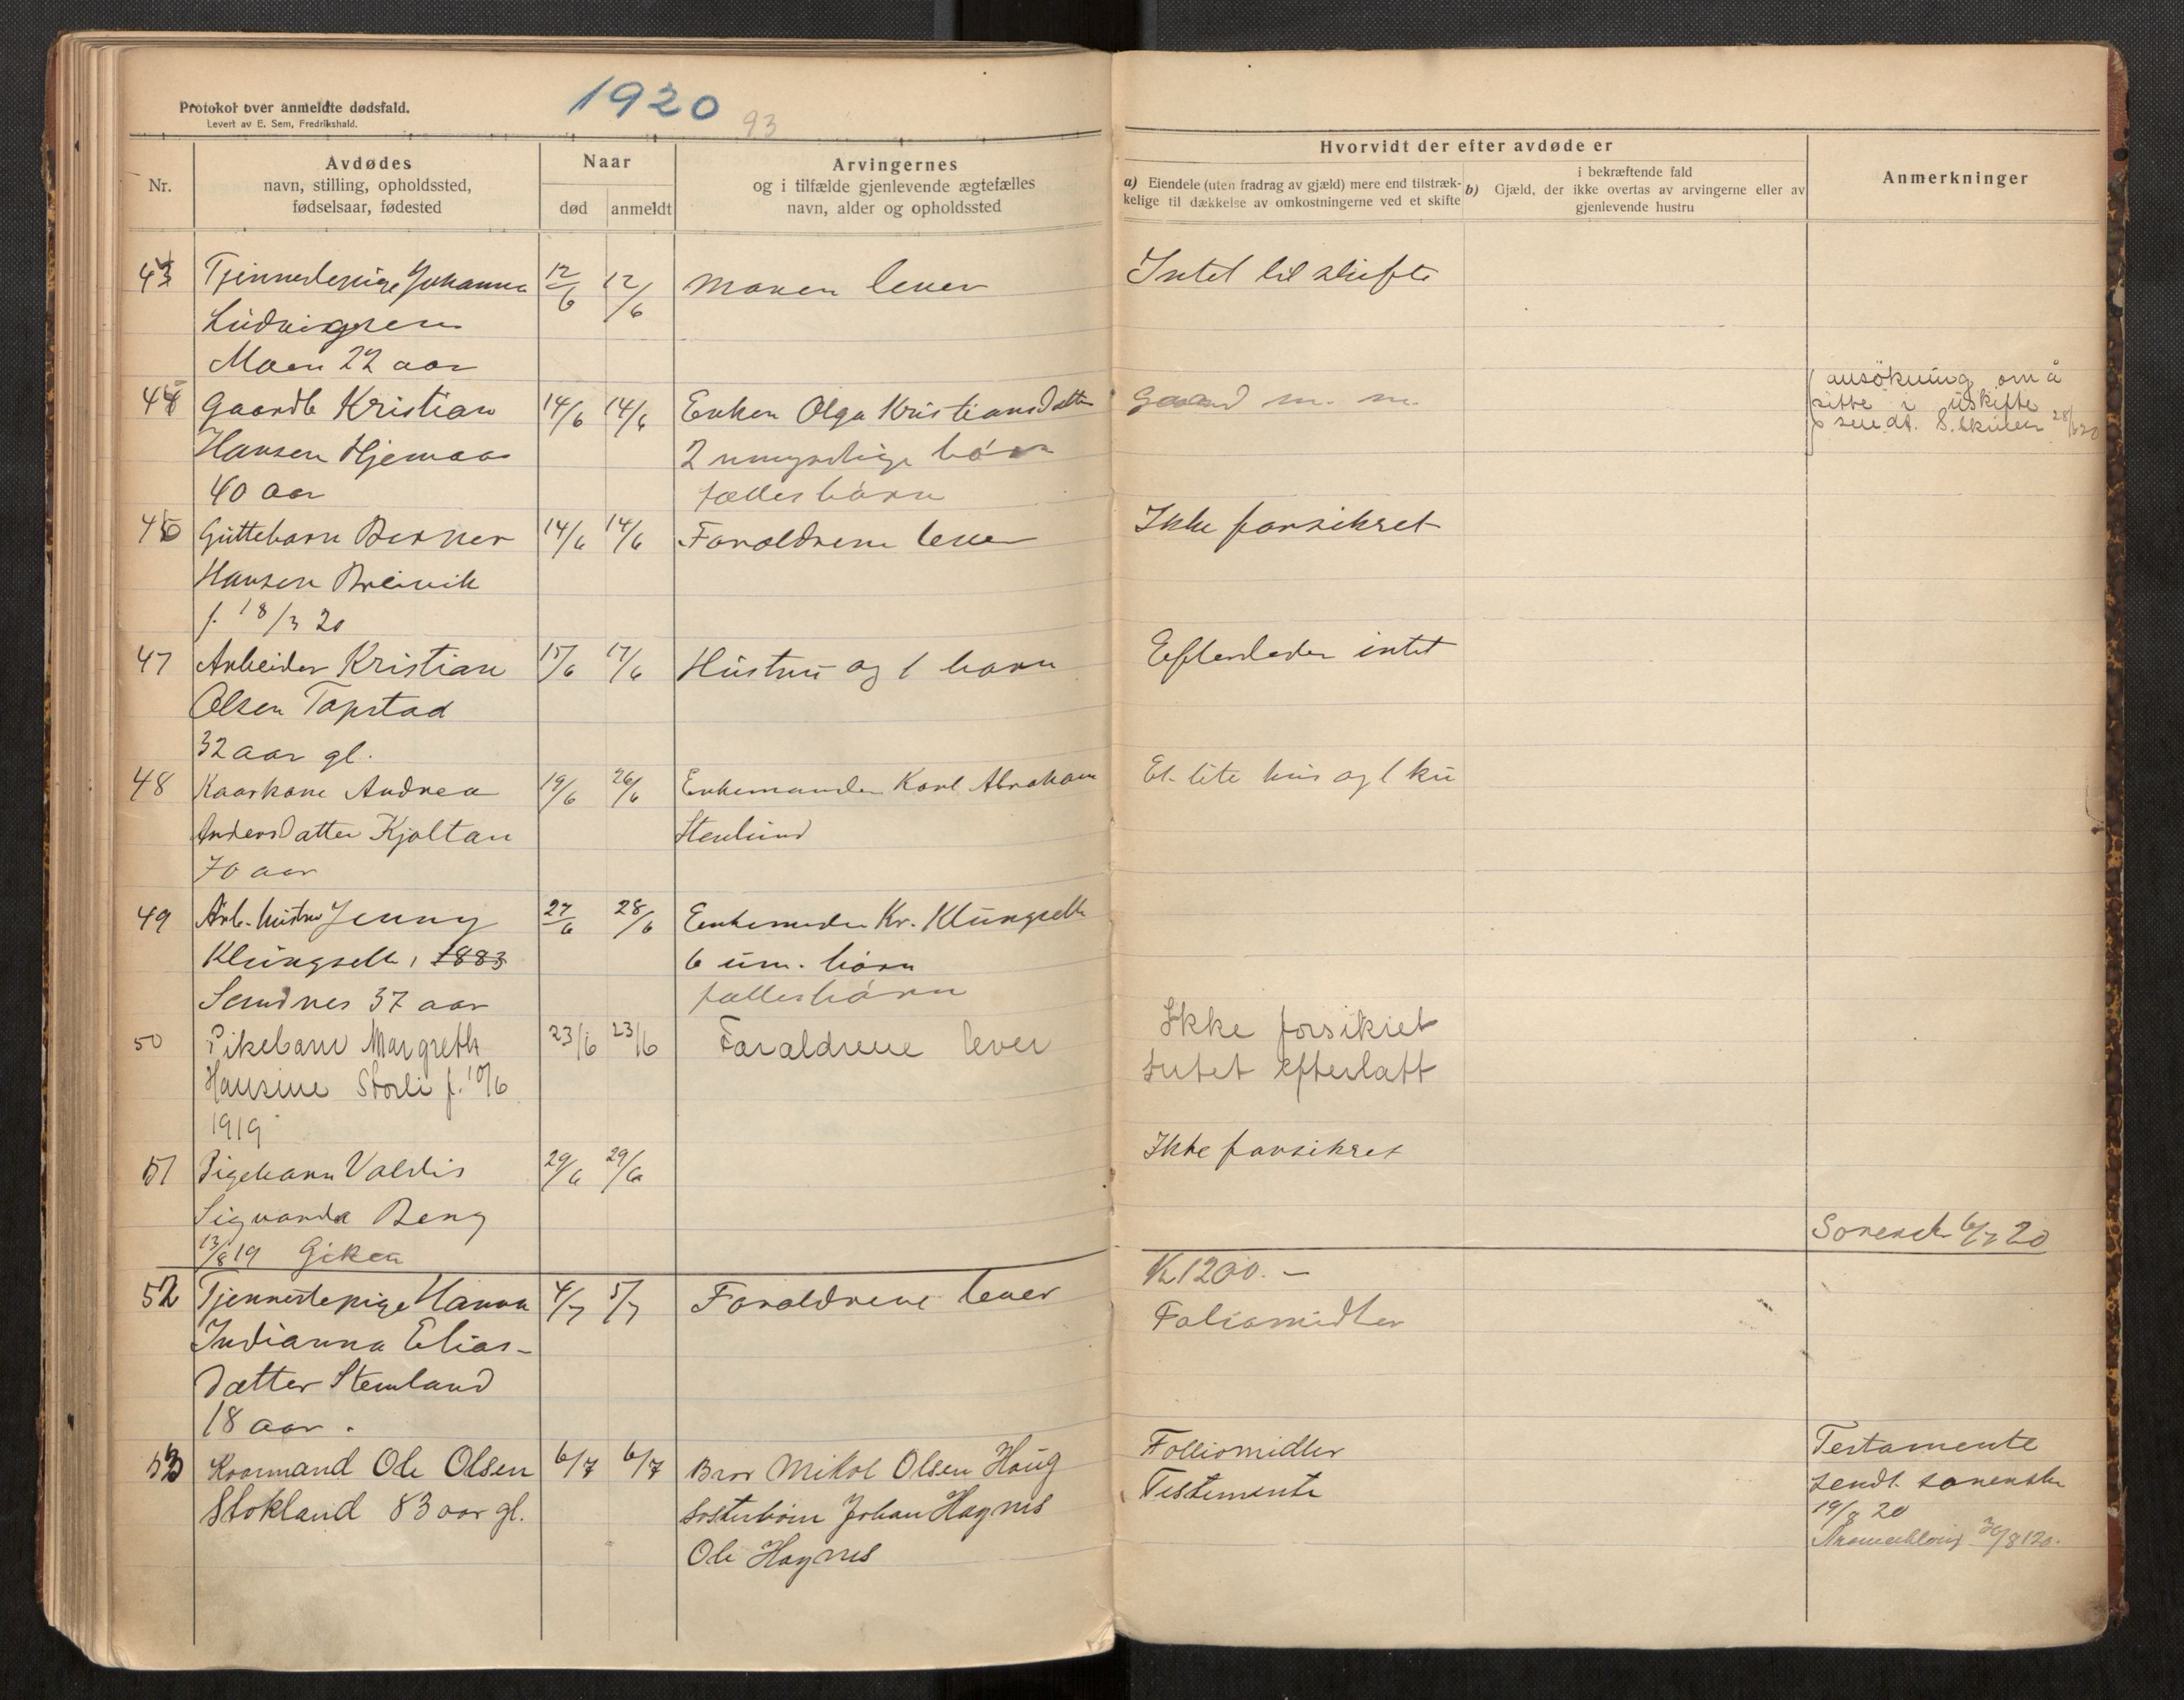 Protokol over anmeldte dødsfald.
Levert av E. Sem, Fredrikshald.
1920
93
Nr.
Avdødes
navn, stilling, opholdssted,
fødselsaar, fødested
Naar
død
anmeldt
Arvingernes
og i tilfælde gjenlevende ægtefælles
navn, alder og opholdssted
Hvorvidt der efter avdøde er
a) Eiendele (uten fradrag av gjæld) mere end tilstræk-
kelige til dækkelse av omkostningerne ved et skifte
i bekræftende fald
b) Gjæld, der ikke overtas av arvingerne eller av
gjenlevende hustru
Anmerkninger
Tjennestepige Johanna 12/6 12/6 Moren lever Intet til skifte
Ludvigsen
Moen 22 aar
Gaardb Kristian 14/6 14/6 Enken Olga Kristiansdatter Gaard m. m. ansökning om å
sitte i uskifte
sendt. S.skriver 28/6 20
Hansen Hjemaas 2 umyndige børn
40 aar fællesbørn
Guttebarn Berner 14/6 14/6 Foraldrene lever Ikke forsikret
Hansen Breivik
f. 18/3 20
47 Arbeider Kristian 15/6 17/6 Hustru og 1 barn Efterlader intet
Olsen Tapstad
32 aar gl.
48 Kaarkone Andrea 19/6 26/6 Enkemanden Karl Abraham Et lite hus og 1 ku
Andersdatter Kjoltan Stenlund
70 aar
49 Arb. hustru Jenny 27/6 28/6 Enkemanden Kr. Klungseth
Klungseth, 1883 6 um. børn
Sandnes 37 aar fællesbørn
50 Pikebarn Margreth 23/6 23/6 Foraldrene lever Ikke forsikret
Hansine Storli f. 10/6 Intet efterlatt
1919
51 Pigebarn Valdis 29/6 29/6 Ikke forsikret
Sigvarda Berg
13/8 19 Giken Sorensk 6/7 20
52 Tjennestepige Hanna 4/7 5/7 Foraldrene lever Kr 1200.-
Indianna Elias- Foliomidler
datter Stemland
18 aar.
53 Kaarmand Ole Olsen 6/7 6/7 Bror Mikal Olsen Haug Folliomidler Testamente
Stokland 83 aar gl. Søsterbörn Johan Hagnes Testemente sendt sorensk
Ole Hagnes 19/8 20